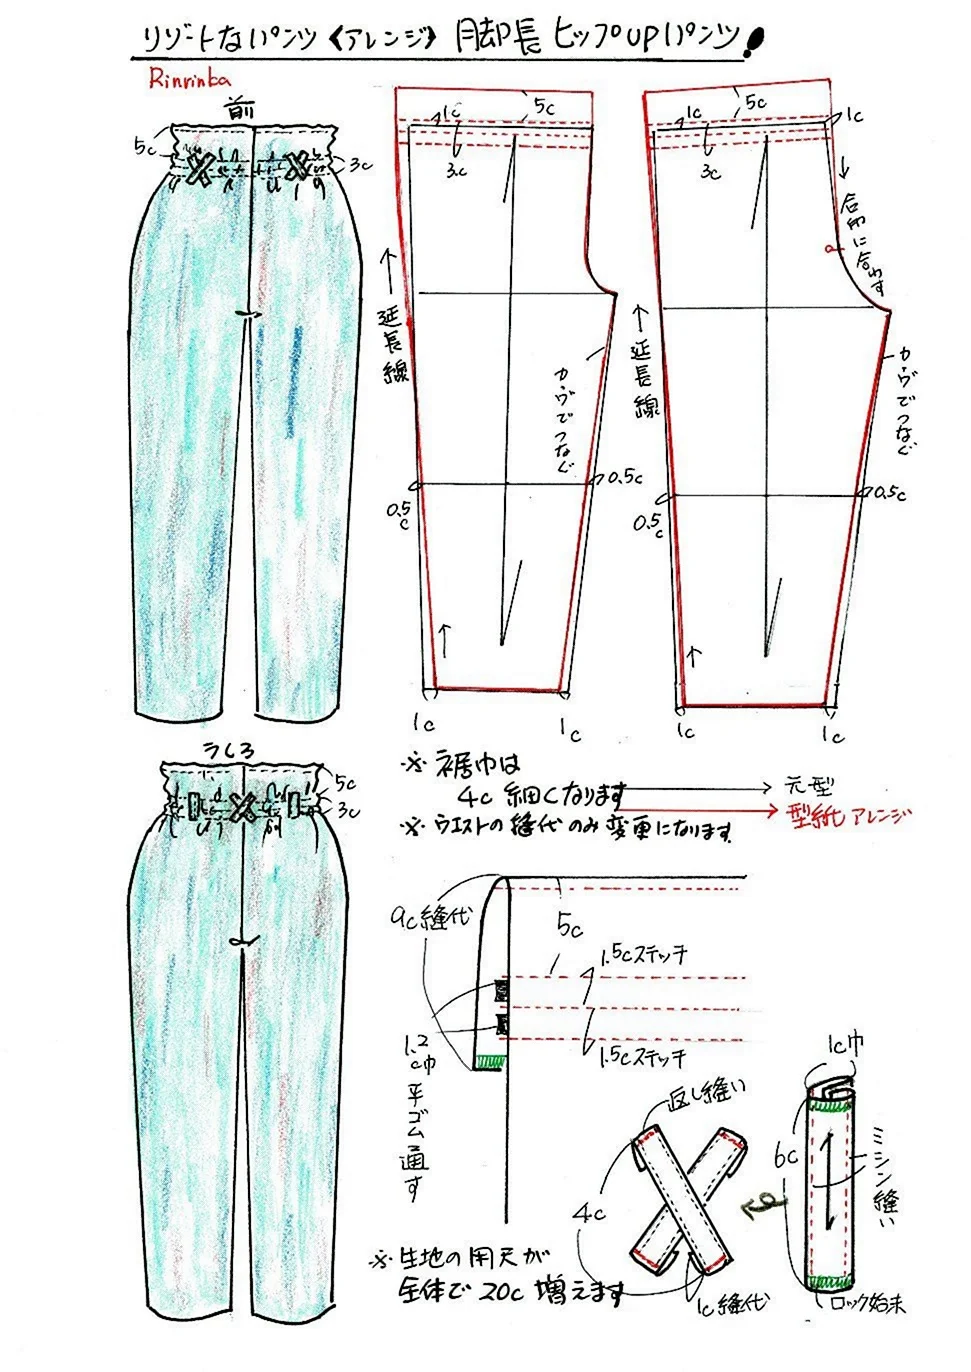 リゾートなパンツ《アレンジ》 脚長ヒップUPパンツ!
Rinrinka
前
5c
3c
1c
5c
3c
↑延長線
カーヴでつなぐ
0.5c
0.5c
1c
1c
1c
5c
1c
3c
→合印に合わす
↑延長線
カーヴでつなぐ
0.5c
0.5c
1c
1c
※裾巾は
4c 細くなります
※ウエストの縫代のみ変更になります
元型
型紙アレンジ
うしろ
5c
3c
9c縫代
5c
1.5cステッチ
1.5cステッチ
1.2c巾平ゴム通す
返し縫い
4c
1c縫代
1c巾
6c
ミシン縫い
ロック始末
※生地の用尺が
全体で20c増えます